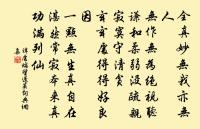 全真妙我亦無
人
無作無為絕視聽
謙和柔弱沒疏親
寂寞守清貧
玄虛得得好良
因
一顆無生真自在
湛然常寂本來真
功滿列仙